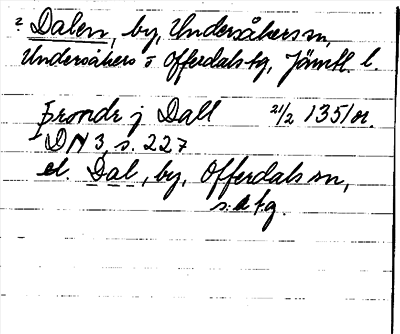 ? Dalen, by, Undersåkers sn,
Undersåkers o Offerdals tg, Jämtl. l.
Trondr j Dall 21/2 1351 or.
DN 3, s. 227
el. Dal, by, Offerdals sn,
s. tg.